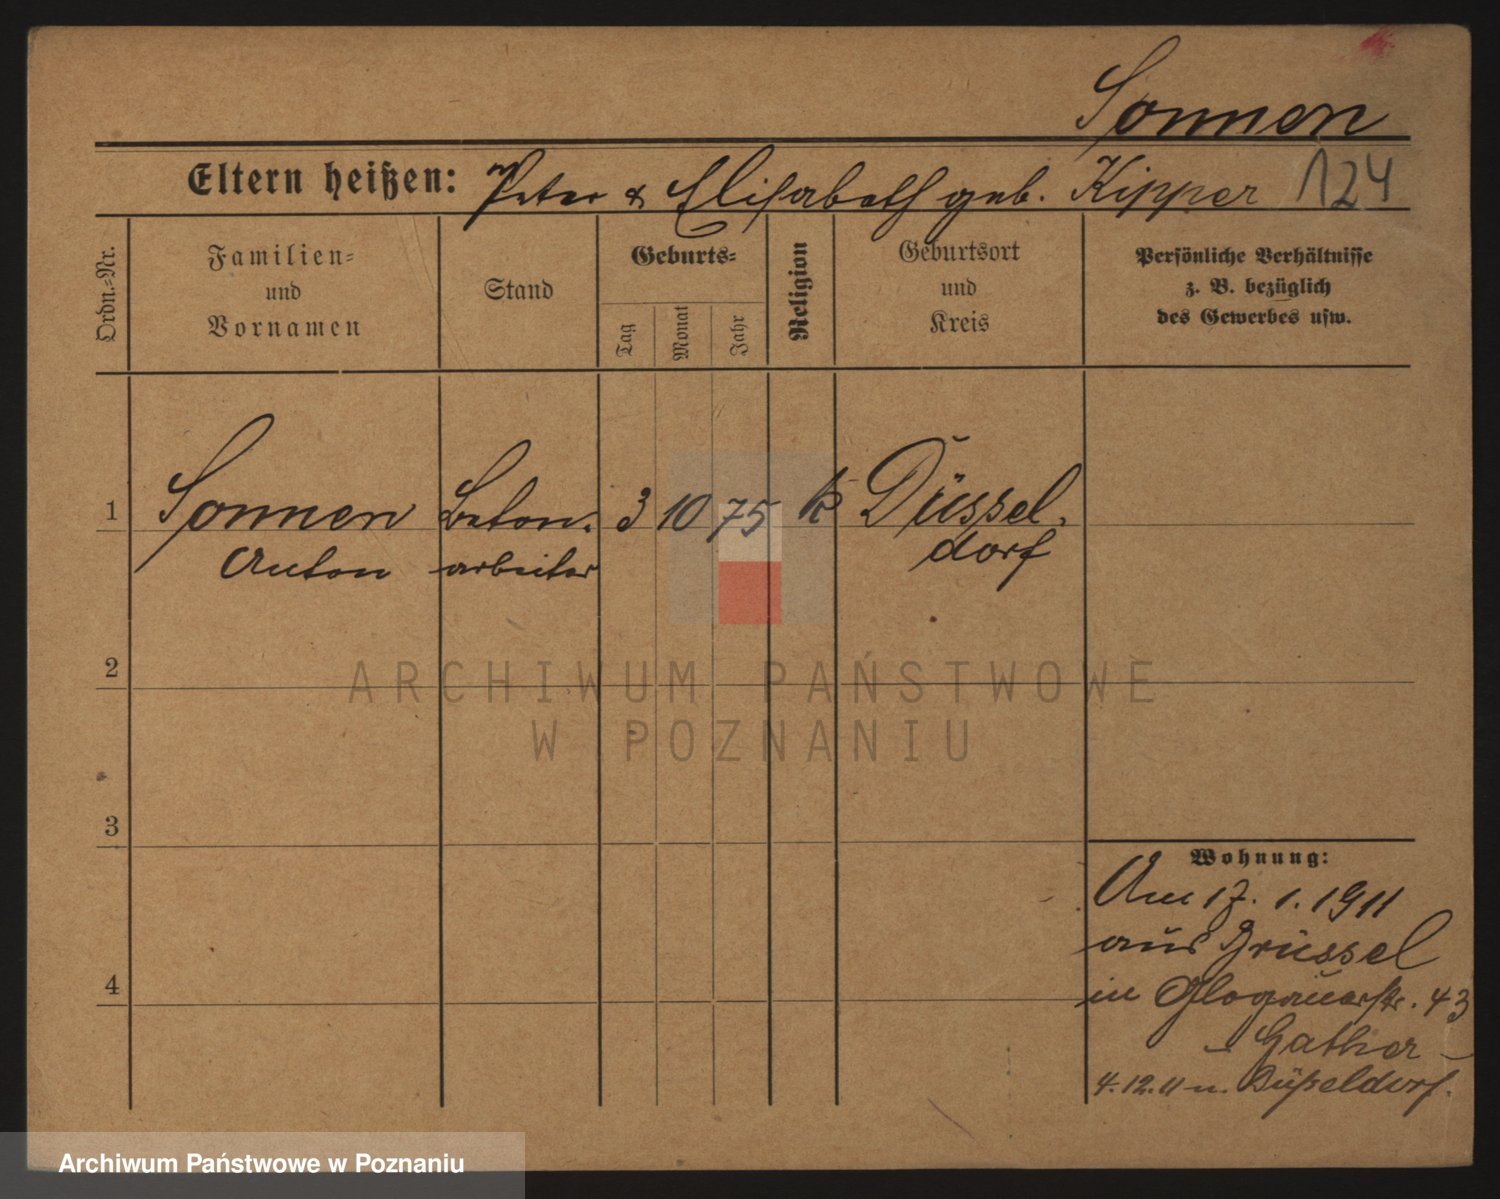 Sonnen
Eltern heißen: Peter & Elisabeth geb. Kipper 124
Ordn.-Nr.
Familien-
und
Vornamen
Stand
Geburts-
Tag
Monat
Jahr
Religion
Geburtsort
und
Kreis
Persönliche Verhältnisse
z. B. bezüglich
des Gewerbes usw.
1 Sonnen Beton- 3 10 75 k Düssel-
Anton arbeiter dorf
2
ARCHIWUM PAŃSTWOWE
W POZNANIU
3
Wohnung:
Am 17. 1. 1911
aus Brüssel
4
in Glogauerstr. 43
- Gather -
4.12.11 n. Düßeldorf.
Archiwum Państwowe w Poznaniu